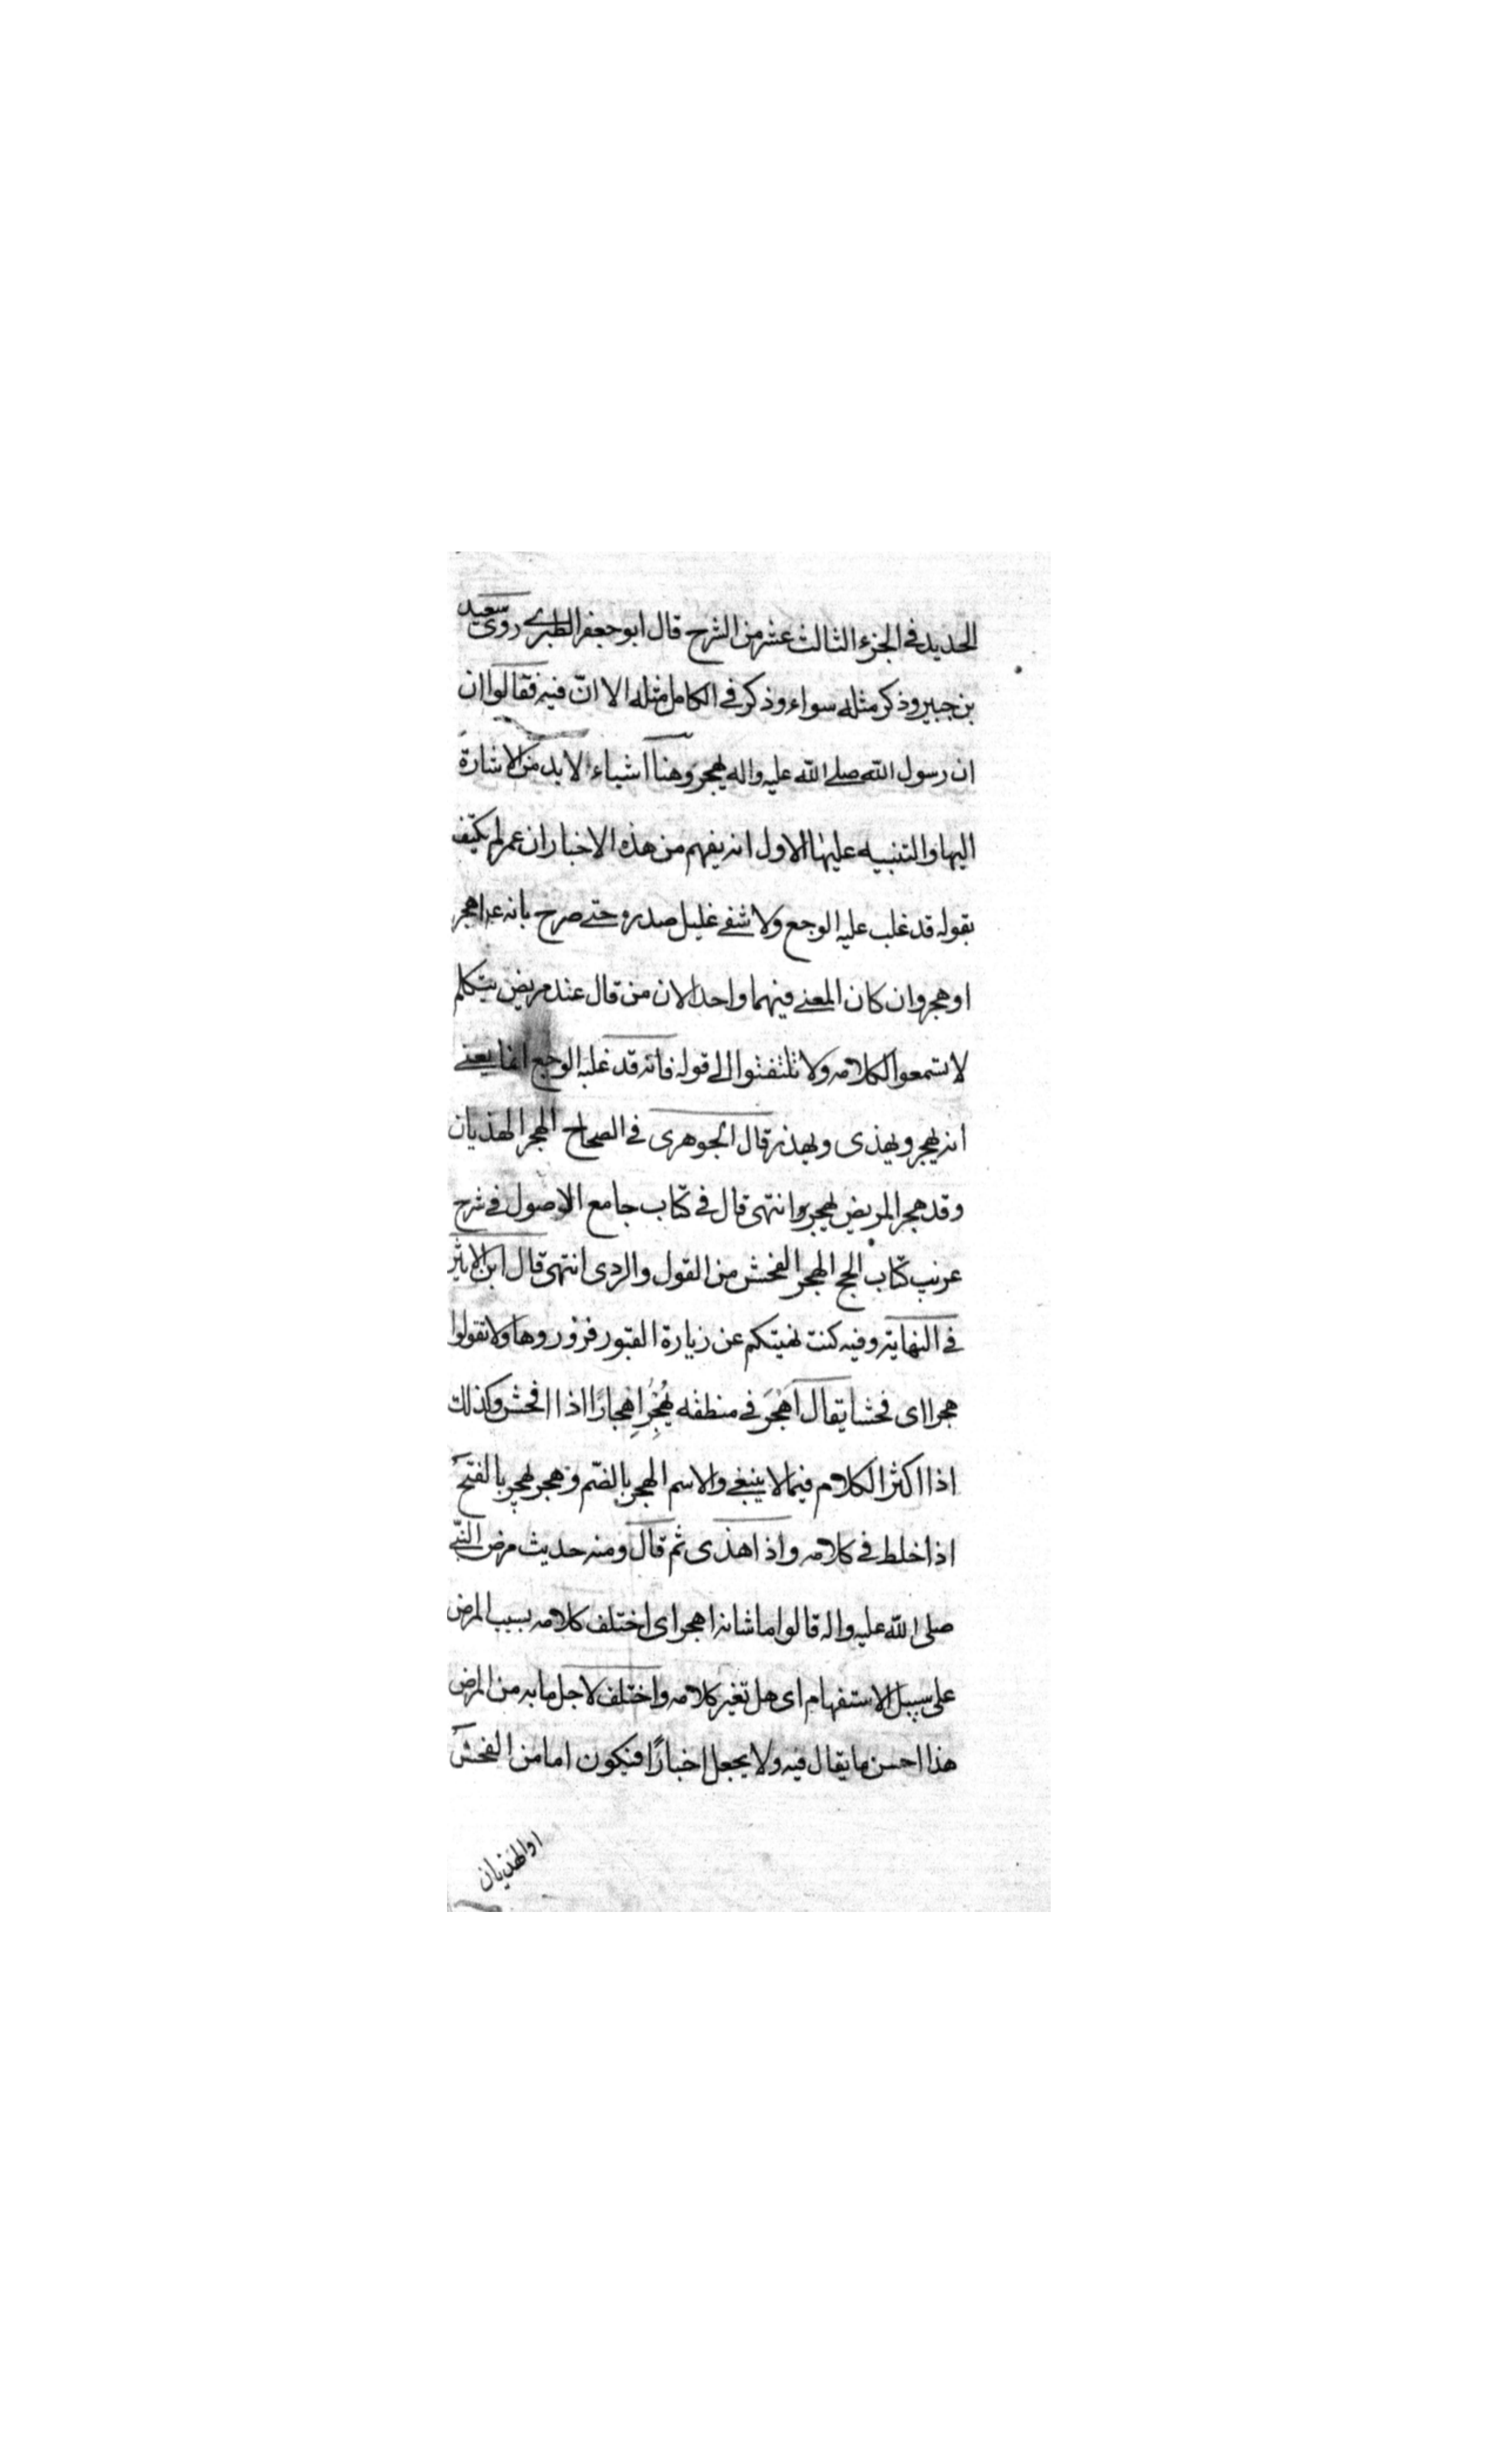 الحديد في الجزء الثالث عشر من الشرح قال ابو جعفر الطبرى روى سعيد
بن جبير وذكر مثله سواء وذكر في الكامل مثله الا انّ فيه فقالوا ان
ان رسول الله صلى الله عليه واله يهجر وهنا اشياء لا بد من الاشارة
اليها والتنبيه عليها الاول انه يفهم من هذه الاخبار ان عمر لم يكتف
بقوله قد غلب عليه الوجع ولا شفى غليل صدره حتى صرح بانه اهجر
او هجر وان كان المعنى فيهما واحدا لان من قال عند مريض يتكلم
لا تسمعوا لكلامه ولا تلتفتوا الى قوله فانه قد غلبه الوجع انما يعنى
انه يهجر ويهذى وبهذ قال الجوهرى في الصحاح الهجر الهذيان
وقد هجر المريض يهجر انتهى قال في كتاب جامع الاصول في شرح
غريب كتاب الحج الهجر الفحش من القول والردى انتهى قال ابن الاثير
في النهاية وفيه كنت نهيتكم عن زيارة القبور فزوروها ولا تقولوا
هجرا اى فحشا يقال اَهْجَرَ في منطقه يُهْجِرُ اِهجارًا اذا افحش وكذلك
اذا اكثر الكلام فيما لا ينبغى والاسم الهجر بالضّم وهجر يهجر بالفتح
اذا خلط في كلامه واذا هذى ثم قال ومنه حديث مرض النبّى
صلى الله عليه واله قالوا ما شانه اهجر اى اختلف كلامه بسبب المرض
على سبيل الاستفهام اى هل تغير كلامه واختلف لاجل ما به من المرض
هذا احسن ما يقال فيه ولا يجعل اخبارًا فيكون اما من الفحش
او الهذيان